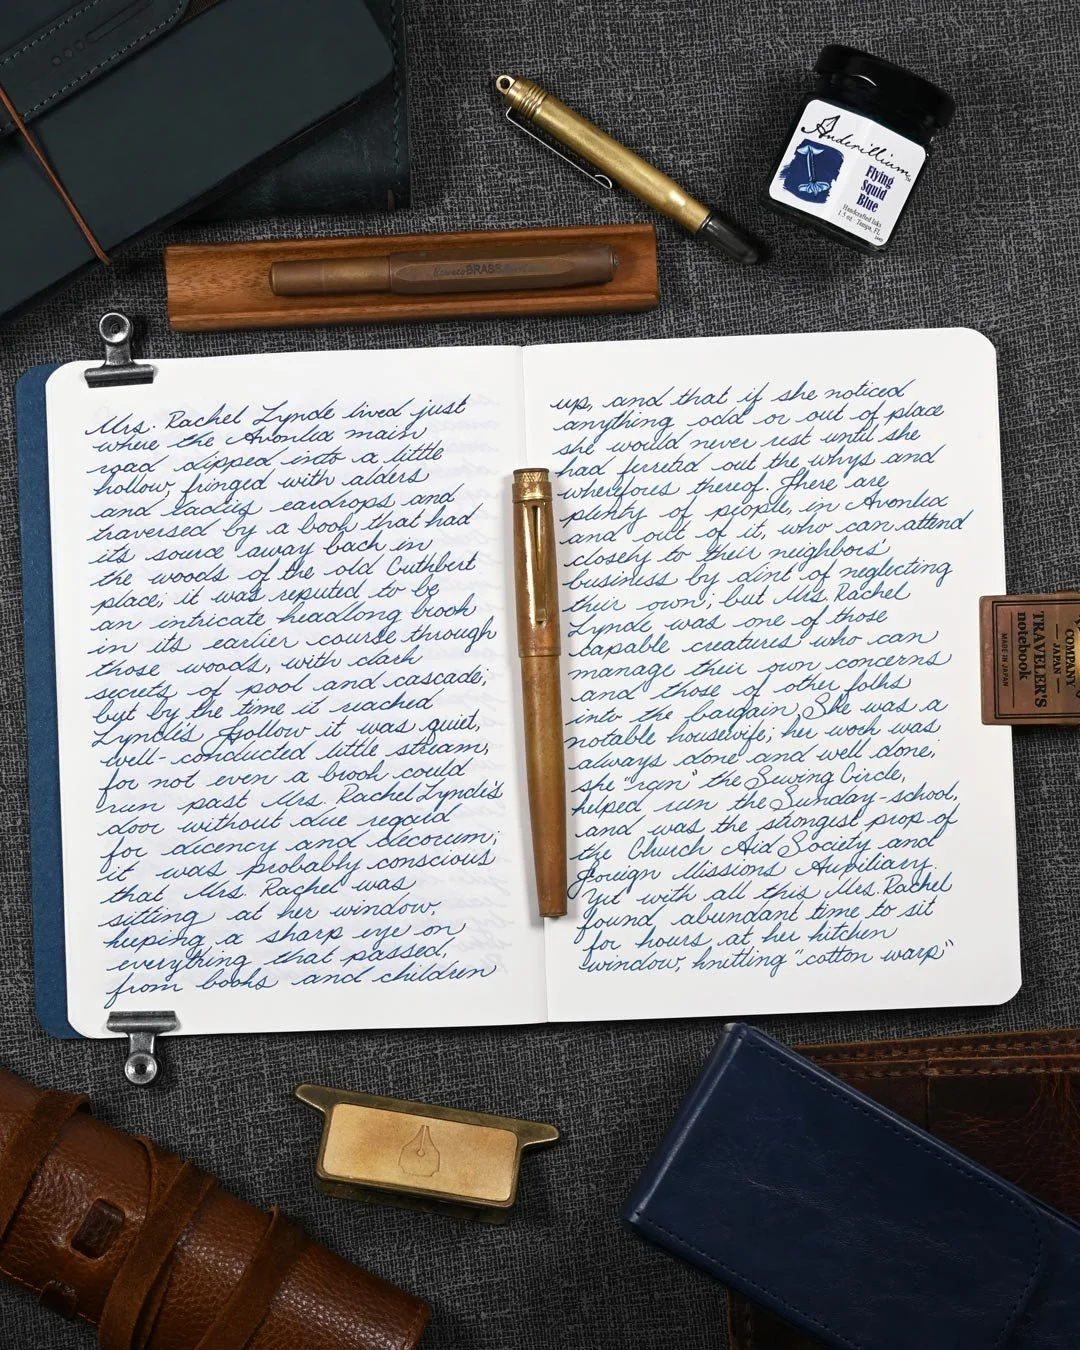 Anderillium
Flying
Squid
Blue
Handcrafted Inks
1.5 oz · Tampa, FL
Kaweco BRASS Sport
Mrs. Rachel Lynde lived just
where the Avonlea main
road dipped into a little
hollow, fringed with alders
and ladies eardrops and
traversed by a book that had
its source away back in
the woods of the old Cuthbert
place; it was reputed to be
an intricate headlong brook
in its earlier course through
those woods, with dark
secrets of pool and cascade;
but by the time it reached
Lynde's Hollow it was quiet,
well-conducted little stream,
for not even a brook could
run past Mrs. Rachel Lynde's
door without due regard
for decency and decorum;
it was probably conscious
that Mrs. Rachel was
sitting at her window,
keeping a sharp eye on
everything that passed,
from books and children
up, and that if she noticed
anything odd or out of place
she would never rest until she
had ferreted out the whys and
wherefores thereof. There are
plenty of people, in Avonlea
and out of it, who can attend
closely to their neighbors'
business by dint of neglecting
their own; but Mrs. Rachel
Lynde was one of those
capable creatures who can
manage their own concerns
and those of other folks
into the bargain. She was a
notable housewife; her work was
always done and well done;
she "ran" the Sewing Circle,
helped run the Sunday-school,
and was the strongest prop of
the Church Aid Society and
Foreign Missions Auxiliary.
Yet with all this Mrs. Rachel
found abundant time to sit
for hours at her kitchen
window, knitting "cotton warp"
COMPANY
— JAPAN —
TRAVELER'S
notebook
MADE IN JAPAN